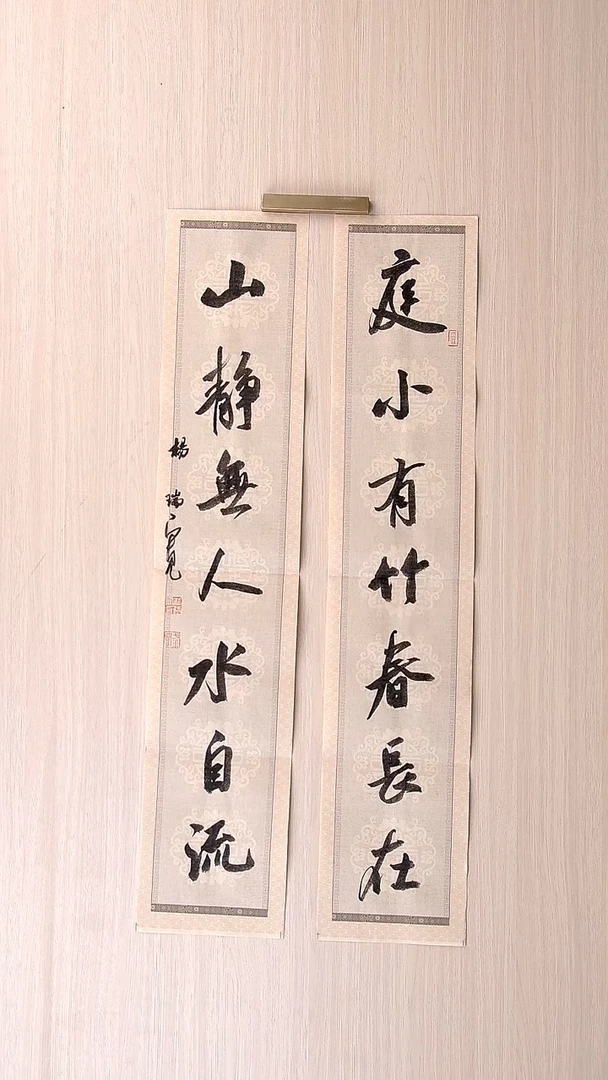 庭小有竹春長在
山靜無人水自流
楊瑞寬